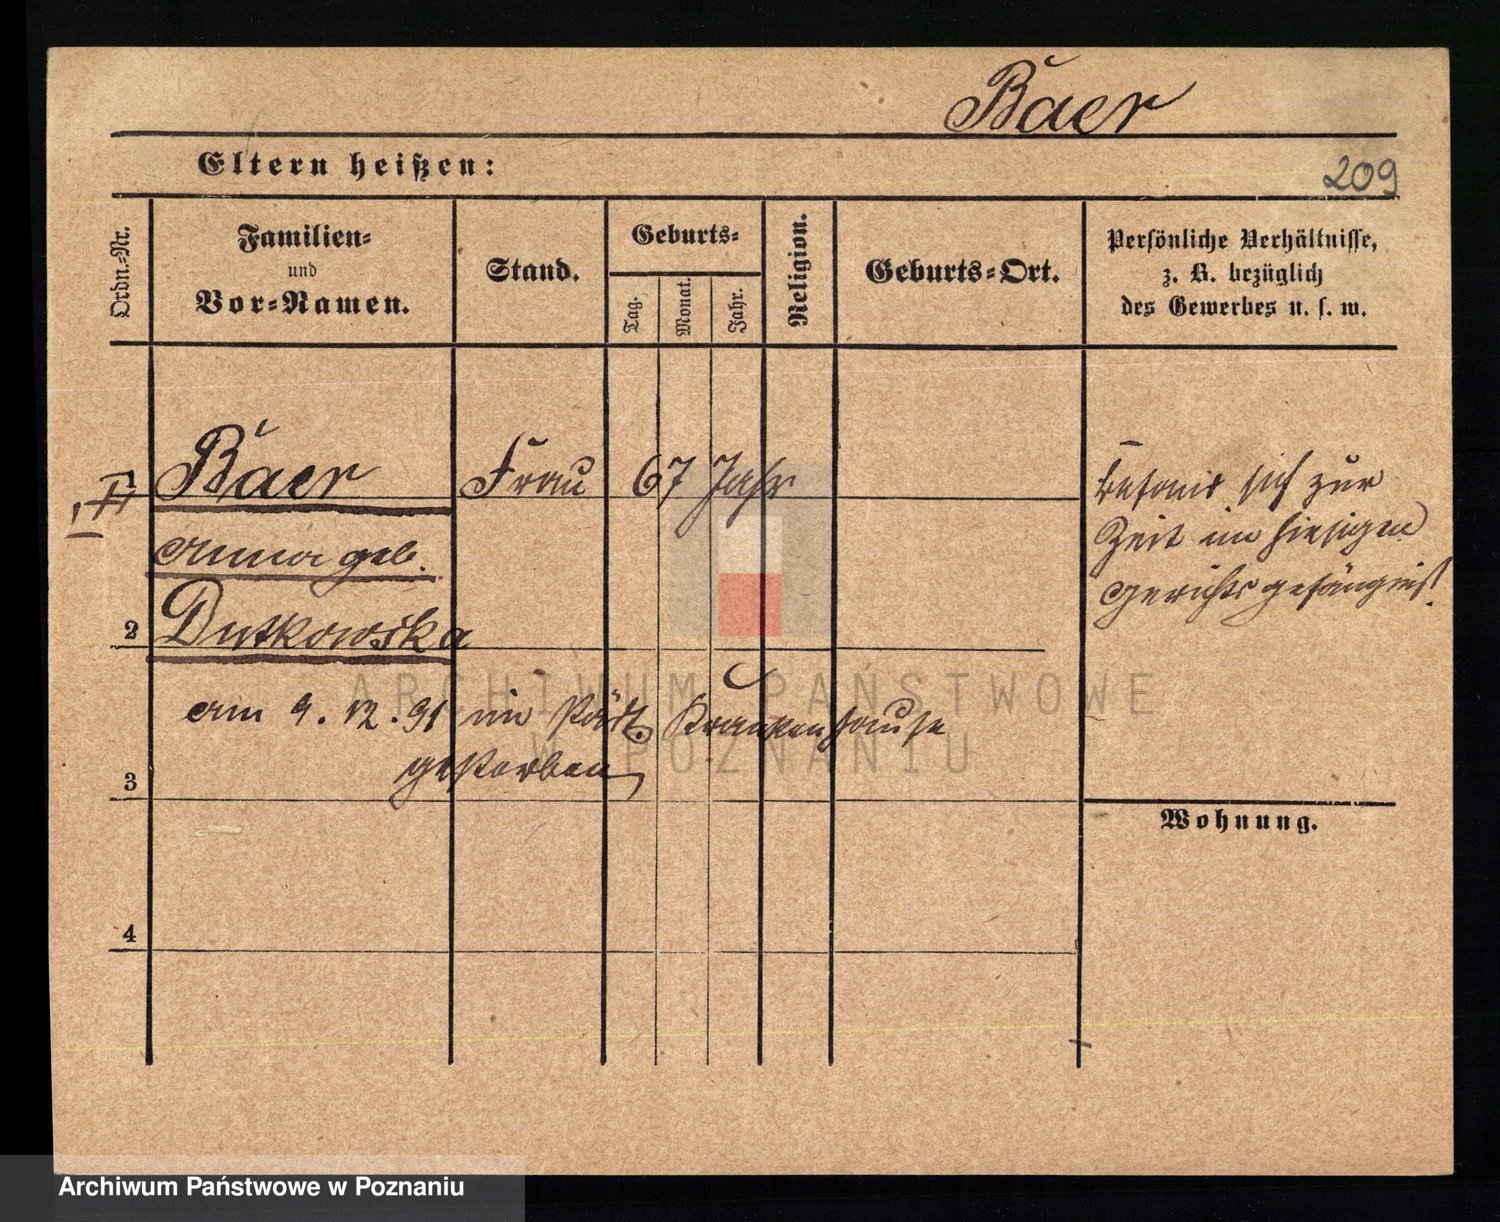 Baer
Eltern heißen:
209
Ordn.-Nr.
Familien-
und
Vor-Namen.
Stand.
Geburts-
Tag.
Monat.
Jahr.
Religion.
Geburts-Ort.
Persönliche Verhältnisse,
z. B. bezüglich
des Gewerbes u. s. w.
Baer Frau 67 Jahr
Anna geb.
2 Dutkowska
am 9. 12. 91 im städt. Krankenhause
gestorben
3
4
sich zur
Zeit im hiesigen
Gerichtsgefängniß.
Wohnung.
ARCHIWUM PAŃSTWOWE
W POZNANIU
Archiwum Państwowe w Poznaniu